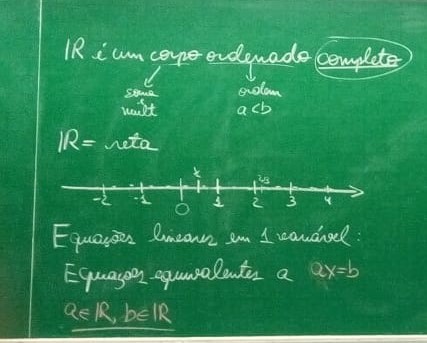 IR é um corpo ordenado completo
soma ordem
mult a<b
IR = reta
-2 -1 0 1 2 3 4
Equações lineares em 1 variável:
Equações equivalentes a ax=b
a∈IR, b∈IR